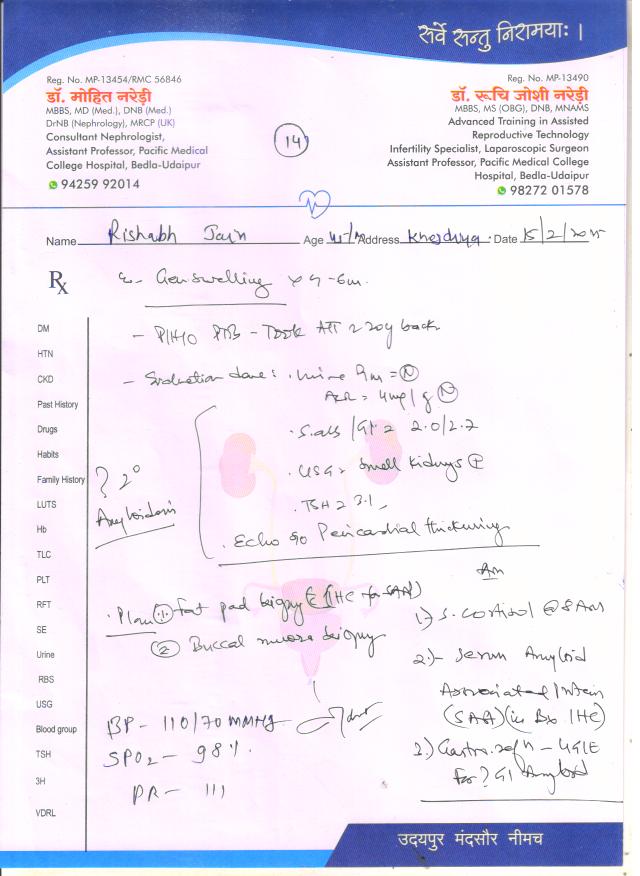 सर्वे सन्तु निरामयाः ।
Reg. No. MP-13454/RMC 56846
डॉ. मोहित नरेड़ी
MBBS, MD (Med.), DNB (Med.)
DrNB (Nephrology), MRCP (UK)
Consultant Nephrologist,
Assistant Professor, Pacific Medical
College Hospital, Bedla-Udaipur
94259 92014
14
Reg. No. MP-13490
डॉ. रूचि जोशी नरेड़ी
MBBS, MS (OBG), DNB, MNAMS
Advanced Training in Assisted
Reproductive Technology
Infertility Specialist, Laparoscopic Surgeon
Assistant Professor, Pacific Medical College
Hospital, Bedla-Udaipur
98272 01578
Name Rishabh Jain Age Address Date 15/2/2025
Rx
Gen swelling
DM
HTN
CKD
Past History
Drugs
Habits
Family History
LUTS
Hb
TLC
PLT
RFT
SE
Urine
RBS
USG
Blood group
TSH
3H
VDRL
- P/H/O PTB - Took ATT 20y back
- Evaluation done : Urine Rm = N
ACR = 4mg/g N
. S. alb / 2.0/2.7
. USG = Small Kidneys
. TSH = 3.1
. Echo s/o Pericardial thickening
? 2°
Amyloidosis
. Plan 1 Fat pad biopsy (IHC for SAA)
2 Buccal mucosa biopsy
BP - 110/70 MMHg
SPO2 - 98%.
PR - 111
Adv
1) S. cortisol @ 8 AM
2) - Serum Amyloid
Associated Protein
(SAA) (in Bx IHC)
3) Gastro. refn - UGIE
For ? GI Amyloid
उदयपुर मंदसौर नीमच